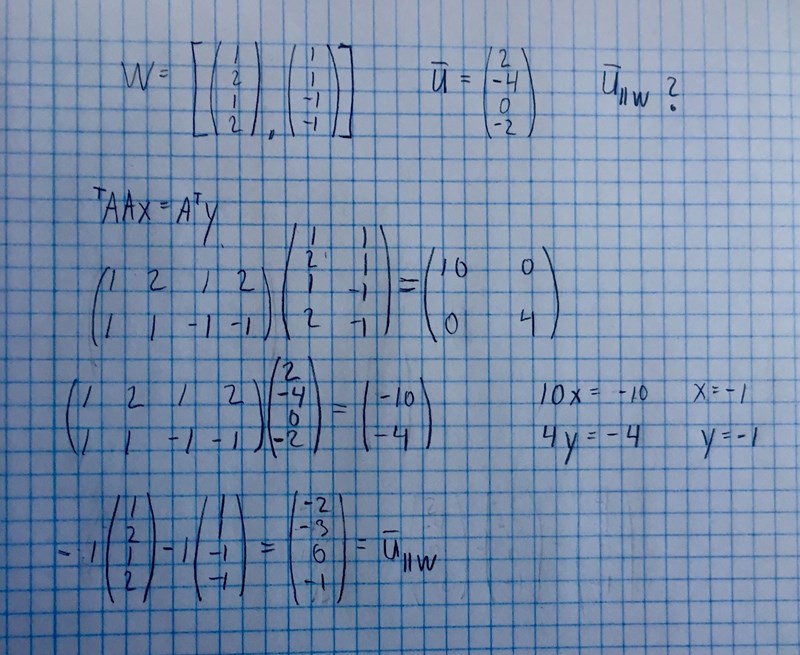 W = [(1 2 1 2), (1 1 -1 -1)] ū = (2 -4 0 -2) ū||W ?
ᵀAAx = Aᵀy
(1 2 1 2 / 1 1 -1 -1) (1 1 / 2 1 / 1 -1 / 2 -1) = (10 0 / 0 4)
(1 2 1 2 / 1 1 -1 -1) (2 -4 0 -2) = (-10 -4) 10x = -10 x = -1
4y = -4 y = -1
-1 (1 2 1 2) -1 (1 1 -1 -1) = (-2 -3 0 -1) = ū||W